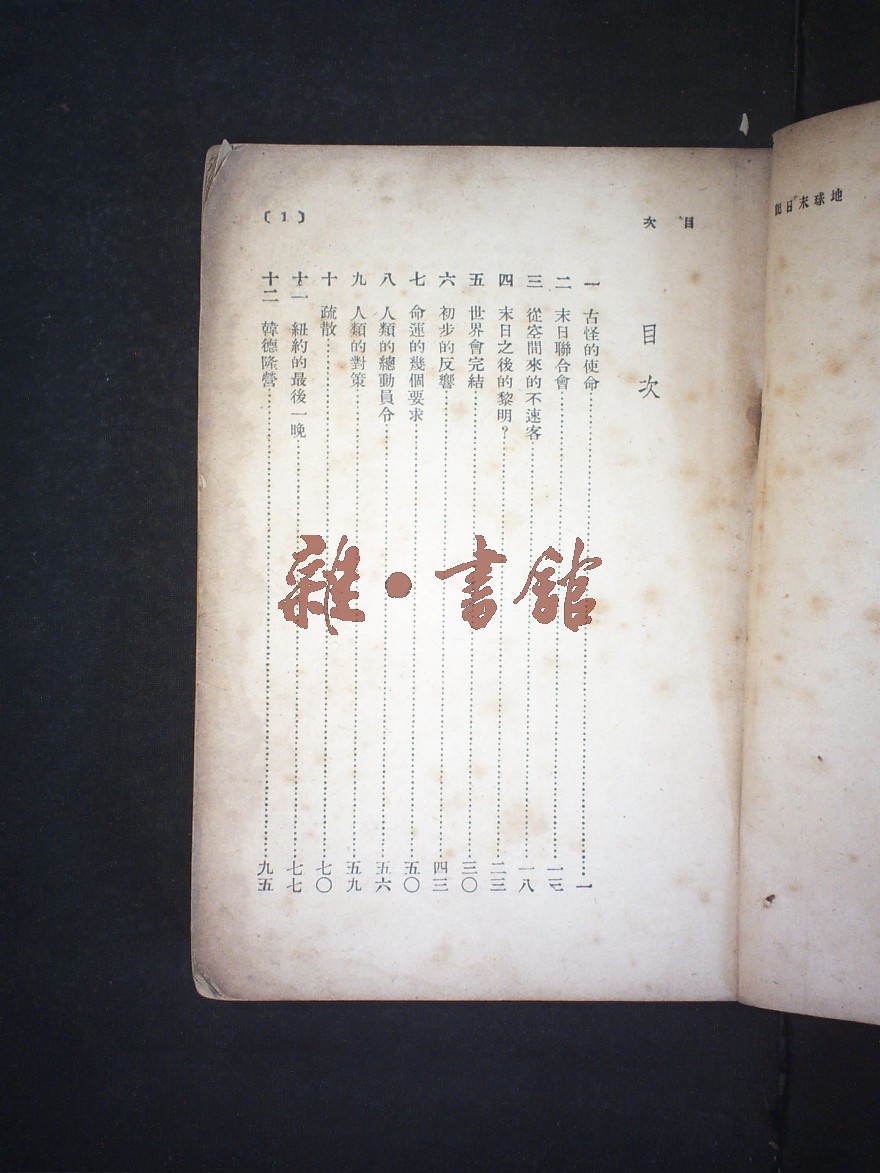 地球末日記
目次
〔1〕
目次
一 古怪的使命……一
二 末日聯合會……一三
三 從空間來的不速客……一八
四 末日之後的黎明?……二三
五 世界會完結……三〇
六 初步的反響……四三
七 命運的幾個要求……五〇
八 人類的總動員令……五六
九 人類的對策……五九
十 疏散……七〇
十一 紐約的最後一晚……七七
十二 韓德隆營……九五
雜·書館